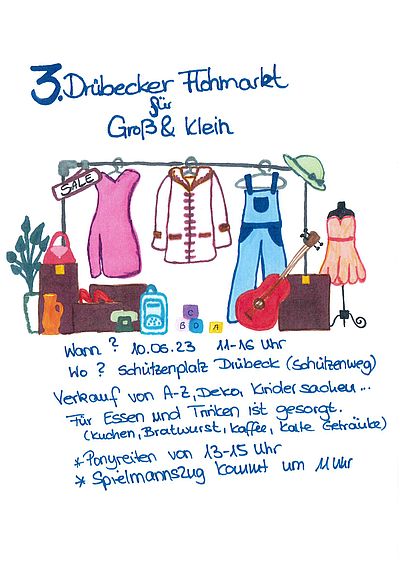 3. Drübecker Flohmarkt
für
Groß & Klein
SALE
C
B D A
Wann? 10.06.23 11-16 Uhr
Wo? Schützenplatz Drübeck (Schützenweg)
Verkauf von A-Z, Deko, Kindersachen...
Für Essen und Trinken ist gesorgt.
(Kuchen, Bratwurst, Kaffee, Kalte Getränke)
* Ponyreiten von 13-15 Uhr
* Spielmannszug kommt um 11 Uhr